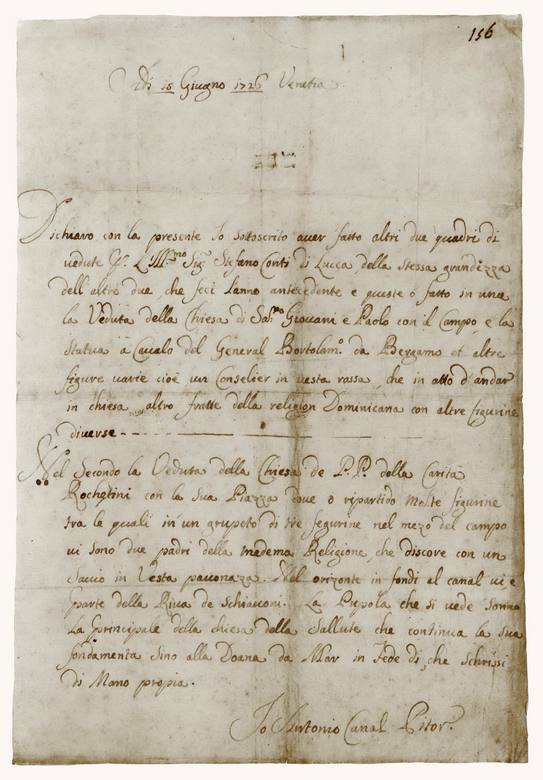 156
Adi 16 Giugno 1726 Venetia
Dichiaro con la presente Io sottoscrito auer fatto altri due quadri di
uedute Sig.r Stefano Conti di Lucca della stessa grandezza
dell'altre due che feci l'anno antecedente e queste o fatto in una
la Veduta della Chiesa di Giovani e Paolo con il Campo e la
Statua à Caualo del General Bortolam.o da Bergamo et altre
figure uarie cioè un Conselier in uesta rassa, che in atto d'andar
in chiesa, altro fratte della religion Dominicana con altre figurine
diuerse
Nel Secondo la Veduta della Chiesa de P.P. della Carità
Rochetini con la sua Piazza doue o ripartido molte figurine
tra le quali in un grupeto di tre fegurine nel mezo del campo
ui sono due padri della medema Religione, che discore con un
Sauio in Vesta pauonazza. Nel orizonte in fondi al canal ui è
parte della Riua de Schiauoni. La che si uede
La principale della chiesa della Sallute che continua la sua
fondamenta sino alla Doana da Mar in Fede di, che schrissi
di Mano propia.
Io Antonio Canal Pitor.